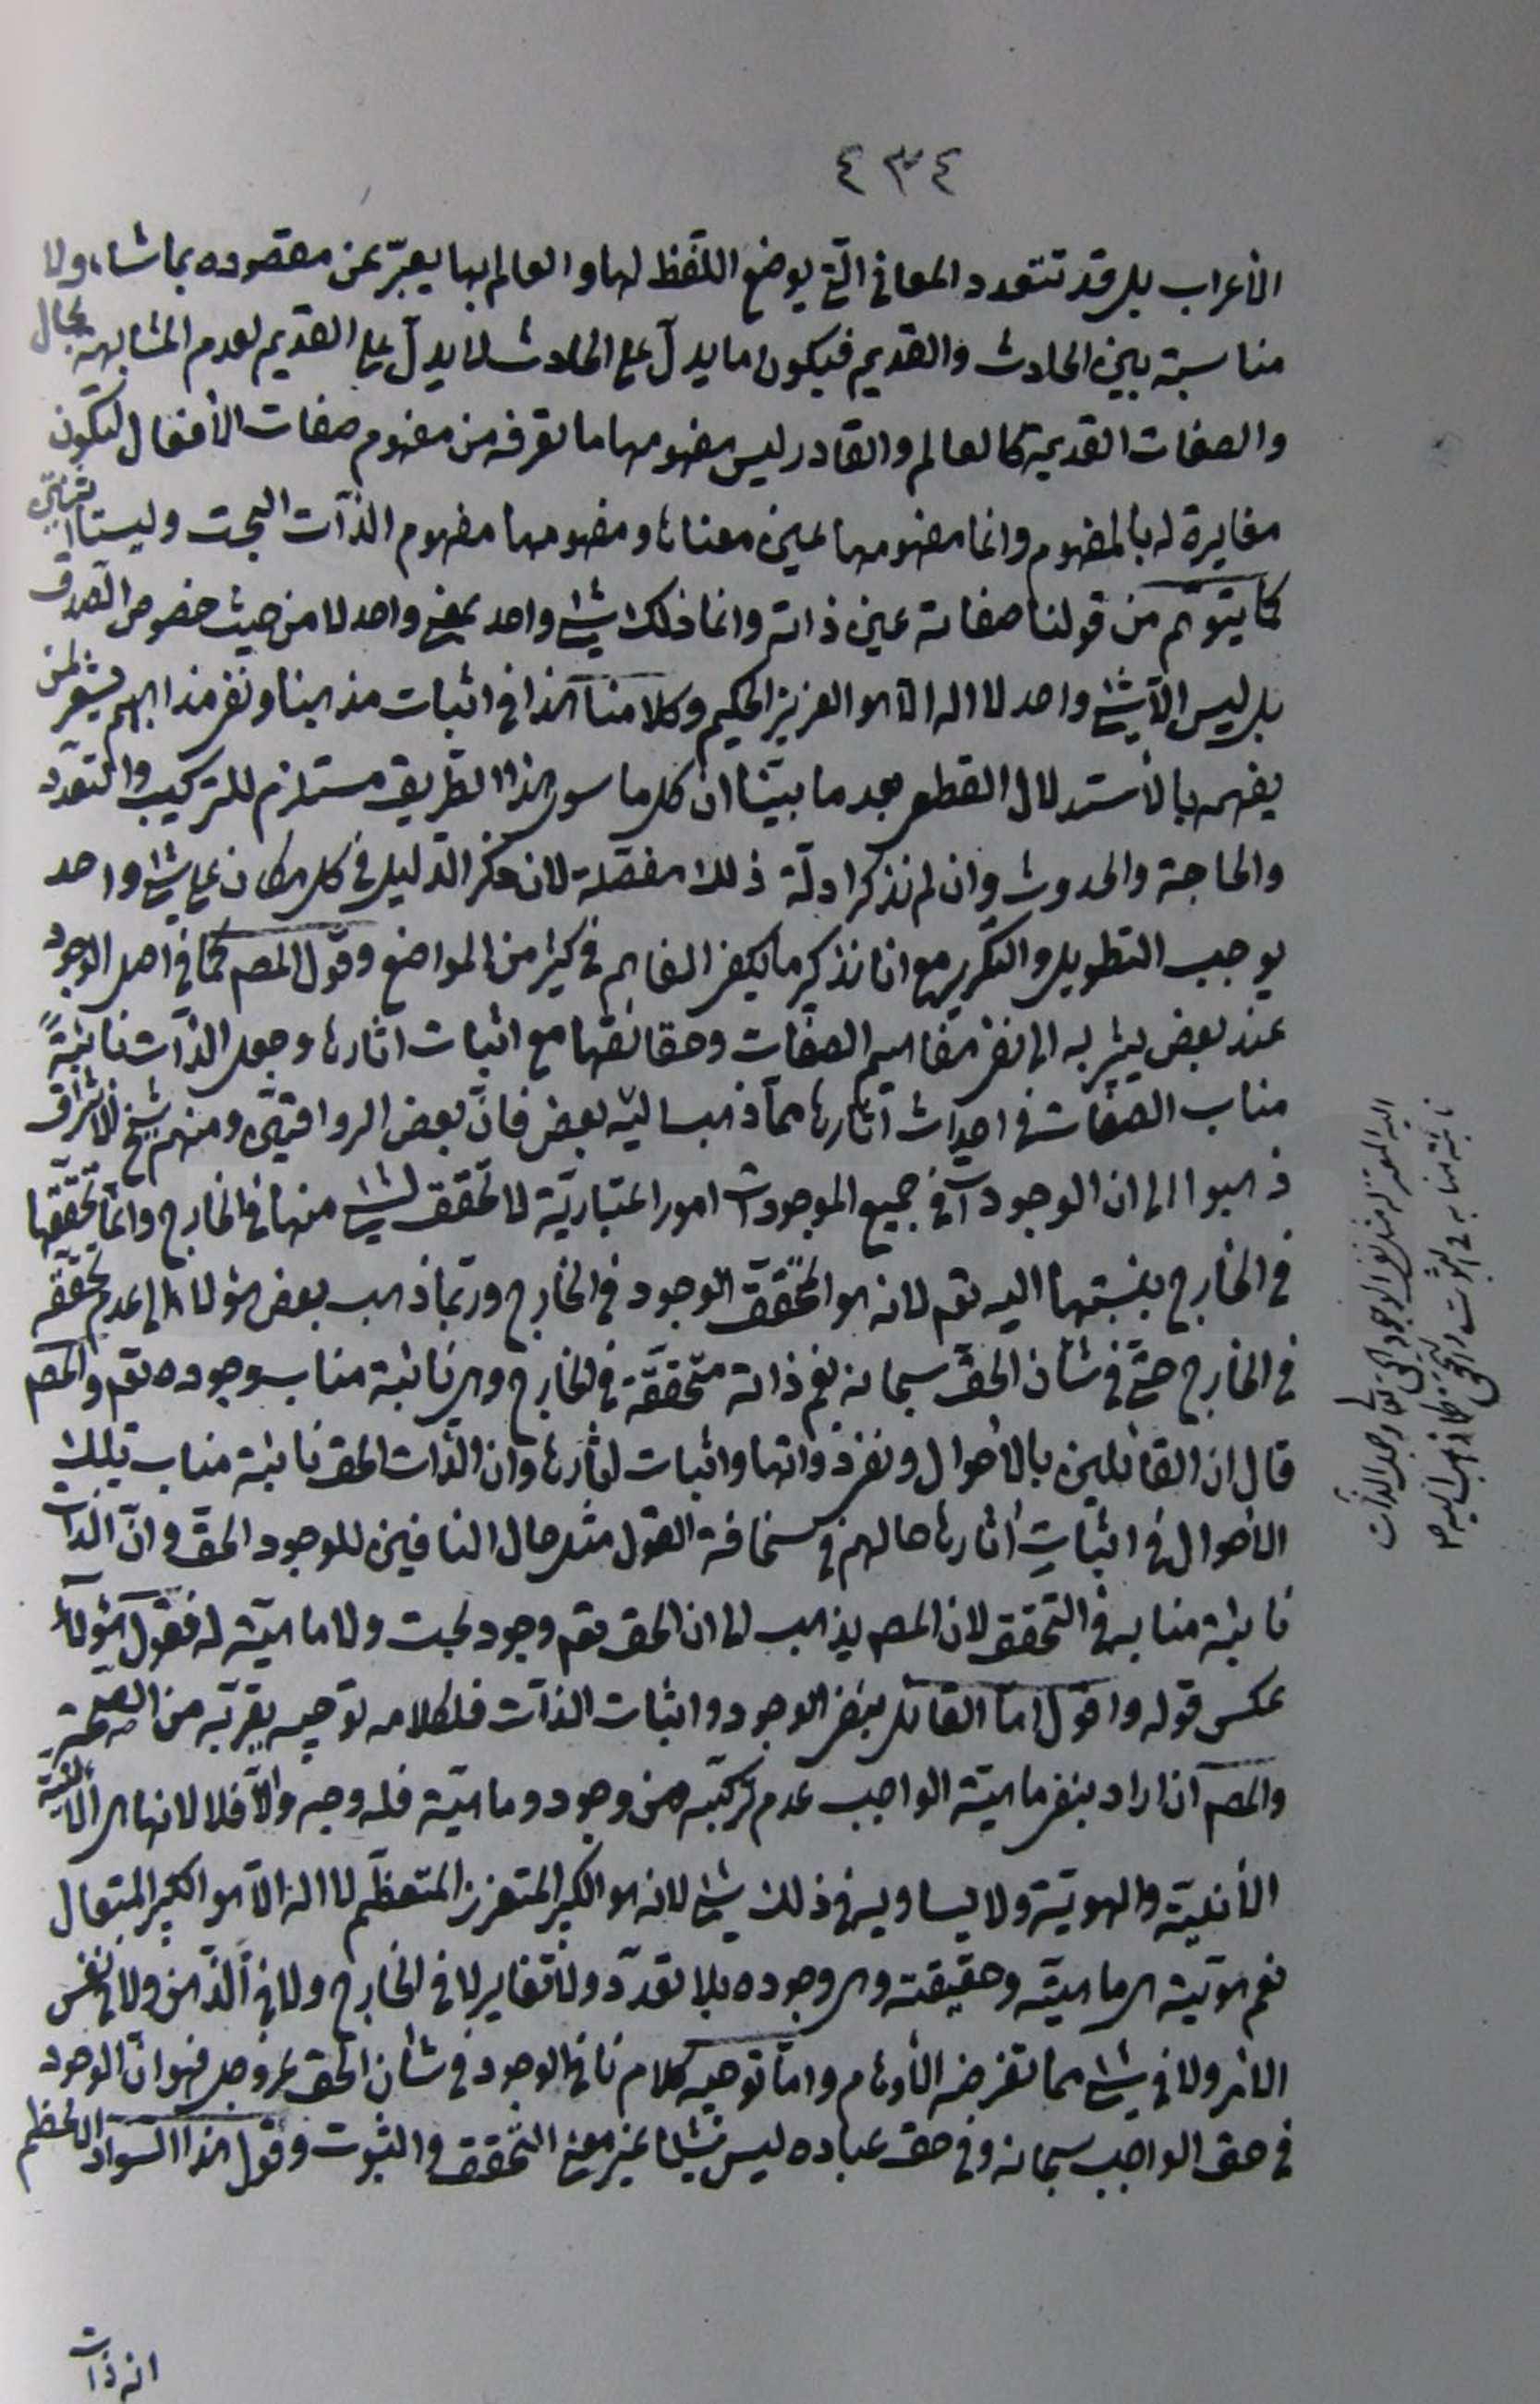 ٤٣٤
الأعراب بل قد تتعدد المعاني الّتي يوضع اللّفظ لها والعالم بها يعبّر عن مقصوده بما شاء، ولا
مناسبة بين الحادث والقديم فيكون ما يدلّ على الحادث لا يدلّ على القديم لعدم المشابهة بحال
والصفات القديمة كالعالم والقادر ليس مفهومها ما تعرفه من مفهوم صفات الأفعال لتكون
مغايرة له بالمفهوم وانما مفهومها عين معناها ومفهومها مفهوم الذّات البحت وليستا اثنين
كما يتوهّم من قولنا صفاته عين ذاته وانما ذلك شيء واحد بمعنى واحد لا من حيث خصوص الصّدق
بل ليس الّا شيء واحد لا اله الّا هو العزيز الحكيم وكلامنا هذا في اثبات مذهبنا ونفي مذاهبهم يشعر لمن
يفهم بالأستدلال القطعي بعد ما بيّنا ان كل ما سوى هذا الطّريق مستلزم للتركيب والتعدّد
والحاجة والحدوث وان لم نذكر ادلّة ذلك مفصّلة لان ذكر الدّليل في كل مكان على شيء واحد
يوجب التطويل والتكرير مع انا نذكر ما يكفي الفاهم في كثير من المواضع وقول المصـ كما في اصل الوجود
عند بعض يشير به الى نفي مفاهيم الصفات وحقائقها مع اثبات اثارها وجعل الذّات نائبةً
مناب الصّفات في احداث آثارها مما ذهب اليه بعض فانّ بعض الرواقيّين ومنهم شيخ الأشراق
ذهبوا الى ان الوجودات في جميع الموجودات امور اعتباريّة لا تحقق لشيء منها في الخارج وانما تحقّقها
في الخارج بنسبتها اليه تعـ لانه هو المحقّق الوجود في الخارج وربّما ذهب بعض هؤلاء الى عدم تحقّقه
في الخارج حتّى في شأن الحقّ سبحانه نعم ذاته متحقّقة في الخارج وهي نائبة مناب وجوده تعـ والمصـ
قال ان القائلين بالأحوال ونفي ذواتها واثبات اثارها وان الذّات الحق نائبة مناب تلك
الأحوال في اثبات اثارها حالهم في سخافة القول مثل حال النافين للوجود الحقّ وانّ الذّات
نائبة منابه في التحقق لان المصـ يذهب الى ان الحق تعـ وجود بحت ولا ماهيّة له فقول هؤلاء
عكس قوله واقول امّا القائل بنفي الوجود واثبات الذّات فلكلامه توجيه يقرّبه من الصّحة
والمصـ ان اراد بنفي ماهيّة الواجب عدم تركّبه من وجود وماهيّة فله وجه والّا فلا لانها هي
الأنّيّة والهويّة ولا يساويه في ذلك شيء لانه هو الكبير المتعزز المتعظّم لا اله الّا هو الكبير المتعال
نعم هويّته هي ماهيّته وحقيقته وهي وجوده بلا تعدّد ولا تغاير لا في الخارج ولا في الذّهن ولا في نفس
الأمر ولا في شيء مما تفرضه الأوهام وامّا توجيه كلام نافي الوجود في شأن الحق عزوجل فهو انّ الوجود
في حق الواجب سبحانه وفي حق عباده ليس شيئا غير معنى التّحقق والثبوت وقول هذا السّواد الاعظم
انه ذات
اليه المعتزلة
نائبة منابه في الثبوت